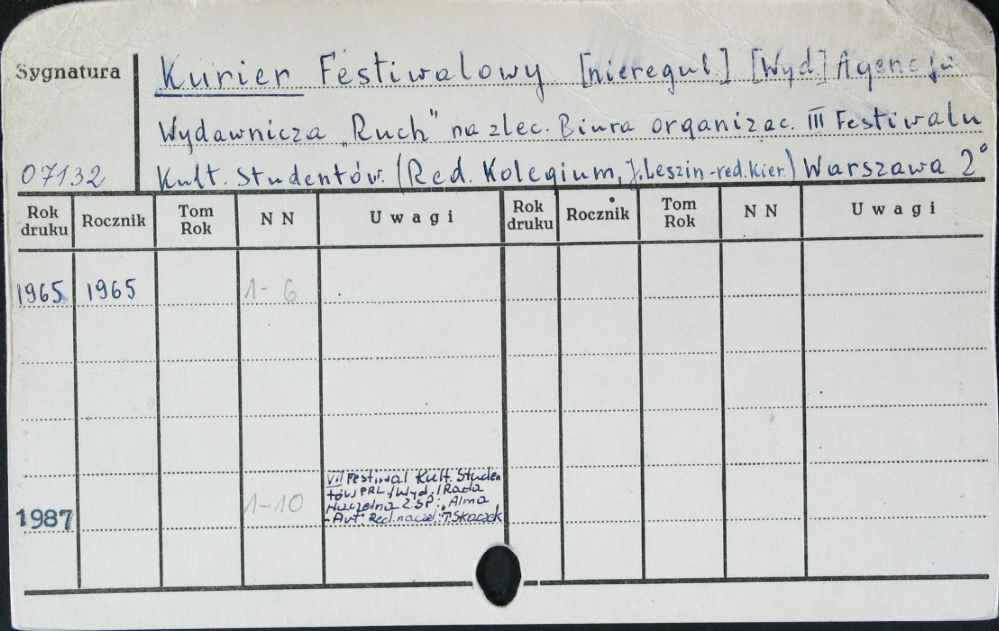 Sygnatura
Kurier Festiwalowy [nieregul] [Wyd] Agencja
Wydawnicza "Ruch" na zlec. Biura organizac. III Festiwalu
07132 Kult. Studentów. (Red. Kolegium, J. Leszin-red. Kier.) Warszawa 2°
Rok druku Rocznik Tom Rok N N Uwagi Rok druku Rocznik Tom Rok N N Uwagi
1965 1965 1-6
VII Festiwal Kult. Studen
tów PRL /Wyd./ Rada
Naczelna ZSP: "Alma
1987 1-10 -Art" Red. nacz.: T. Skoczek